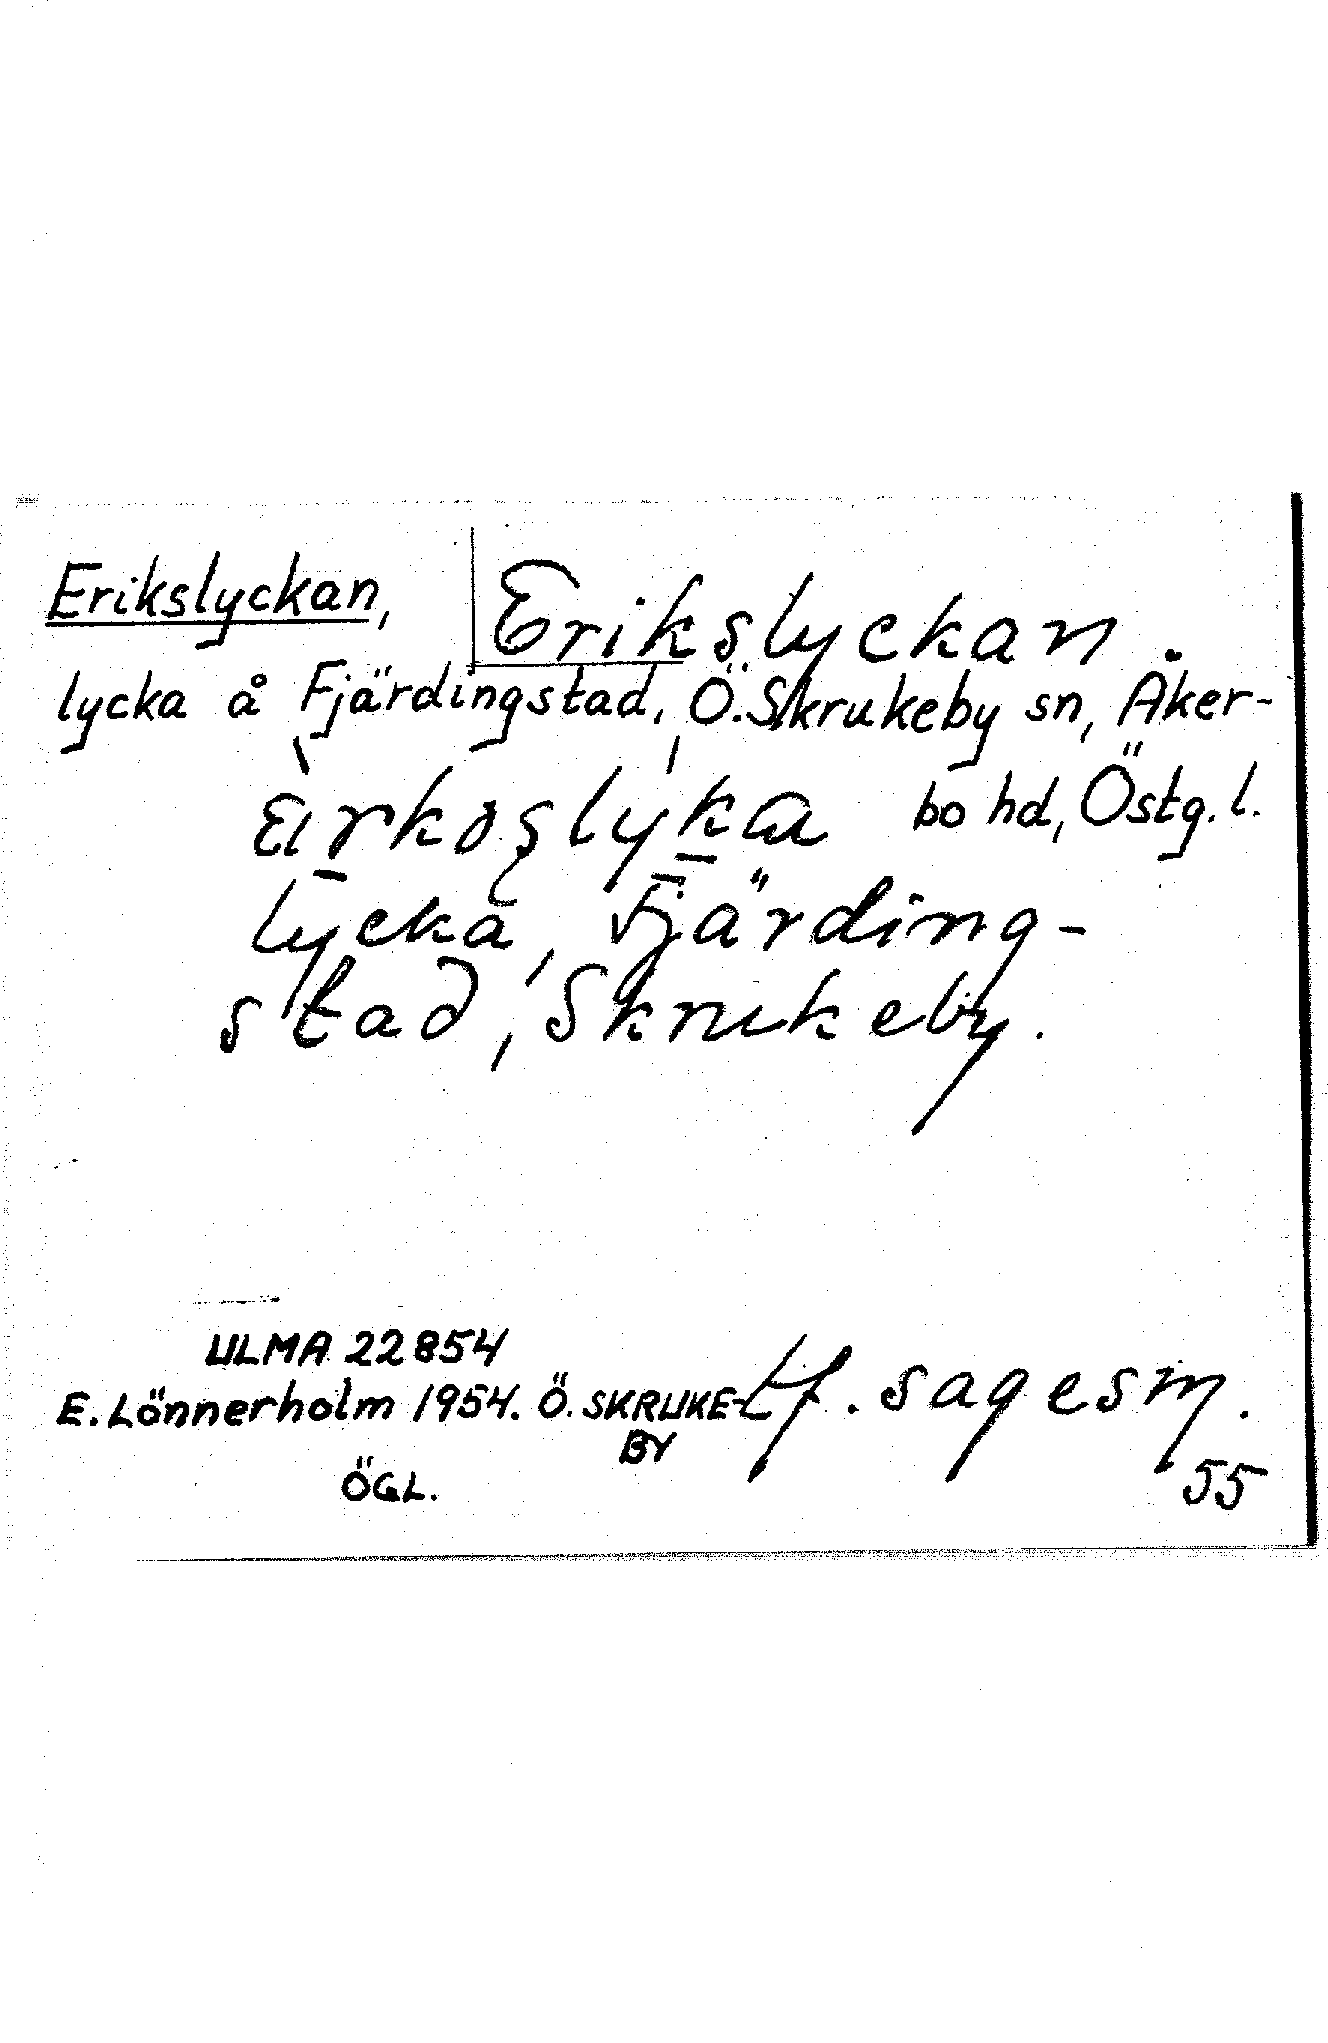 Erikslyckan,
Erikslyckan.
lycka å Fjärdingstad, Ö. Skrukeby sn, Åker-
bo hd, Östg. l.
lycka, Fjärding-
stad, Skrukeby.
ULMA 22854
E. Lönnerholm 1954. Ö. SKRUKE-
BY
ÖGL.
sagesm.
55